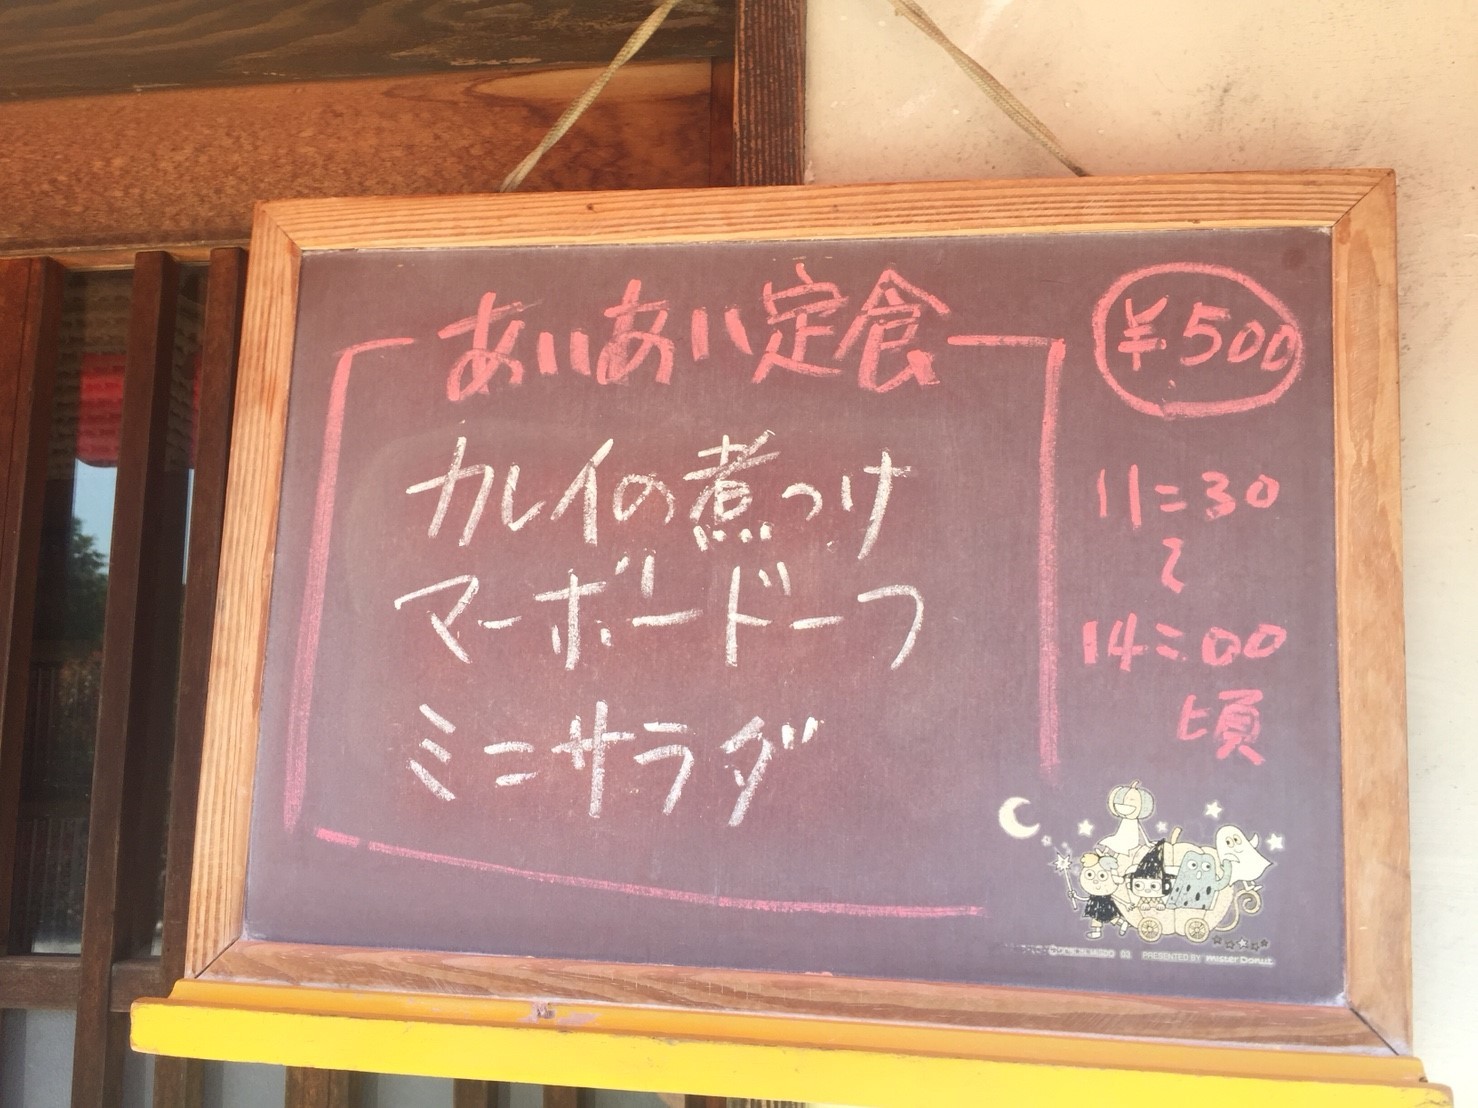 あいあい定食
¥500
カレイの煮つけ
マーボードーフ
ミニサラダ
11:30
〜
14:00
頃
PRESENTED BY mister Donut